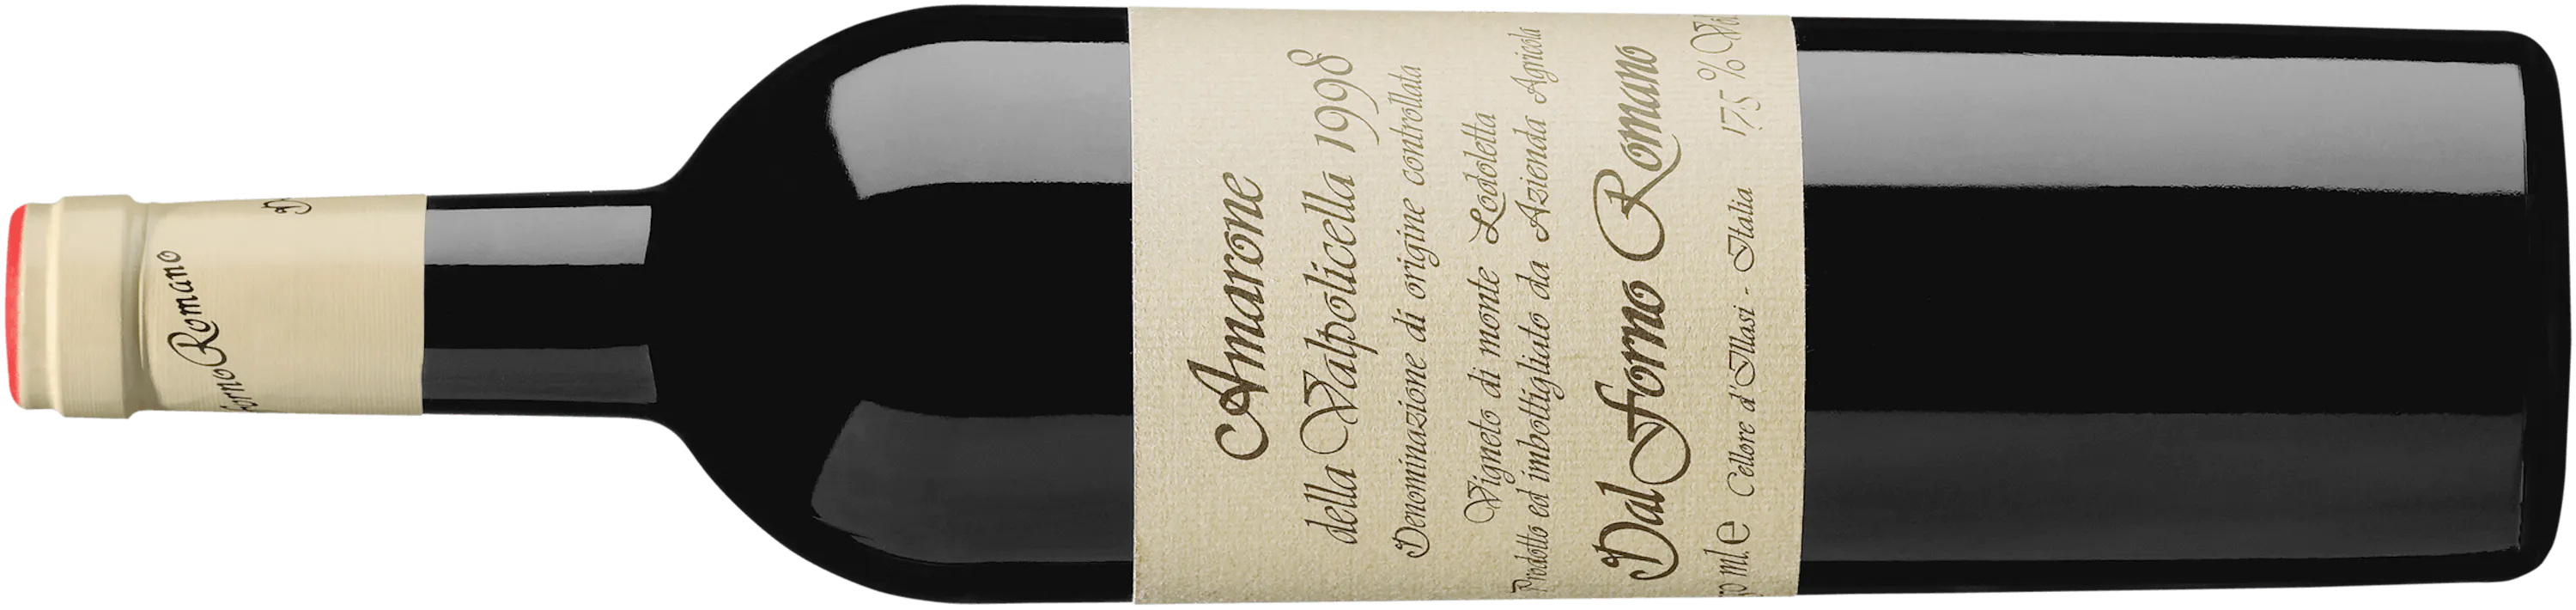 Amarone
della Valpolicella 1998
Denominazione di origine controllata
Vigneto di monte Lodoletta
Prodotto ed imbottigliato da Azienda Agricola
Dal Forno Romano
ml. e Cellore d'Illasi - Italia 17,5 % Vol
Forno Romano
D